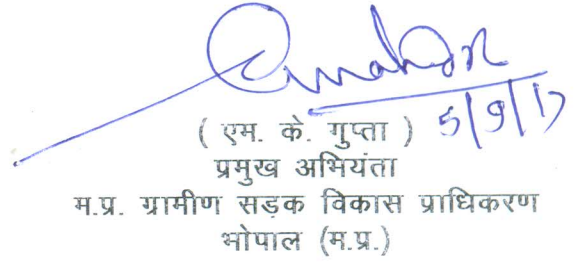 5/9/17
( एम. के. गुप्ता )
प्रमुख अभियंता
म.प्र. ग्रामीण सड़क विकास प्राधिकरण
भोपाल (म.प्र.)